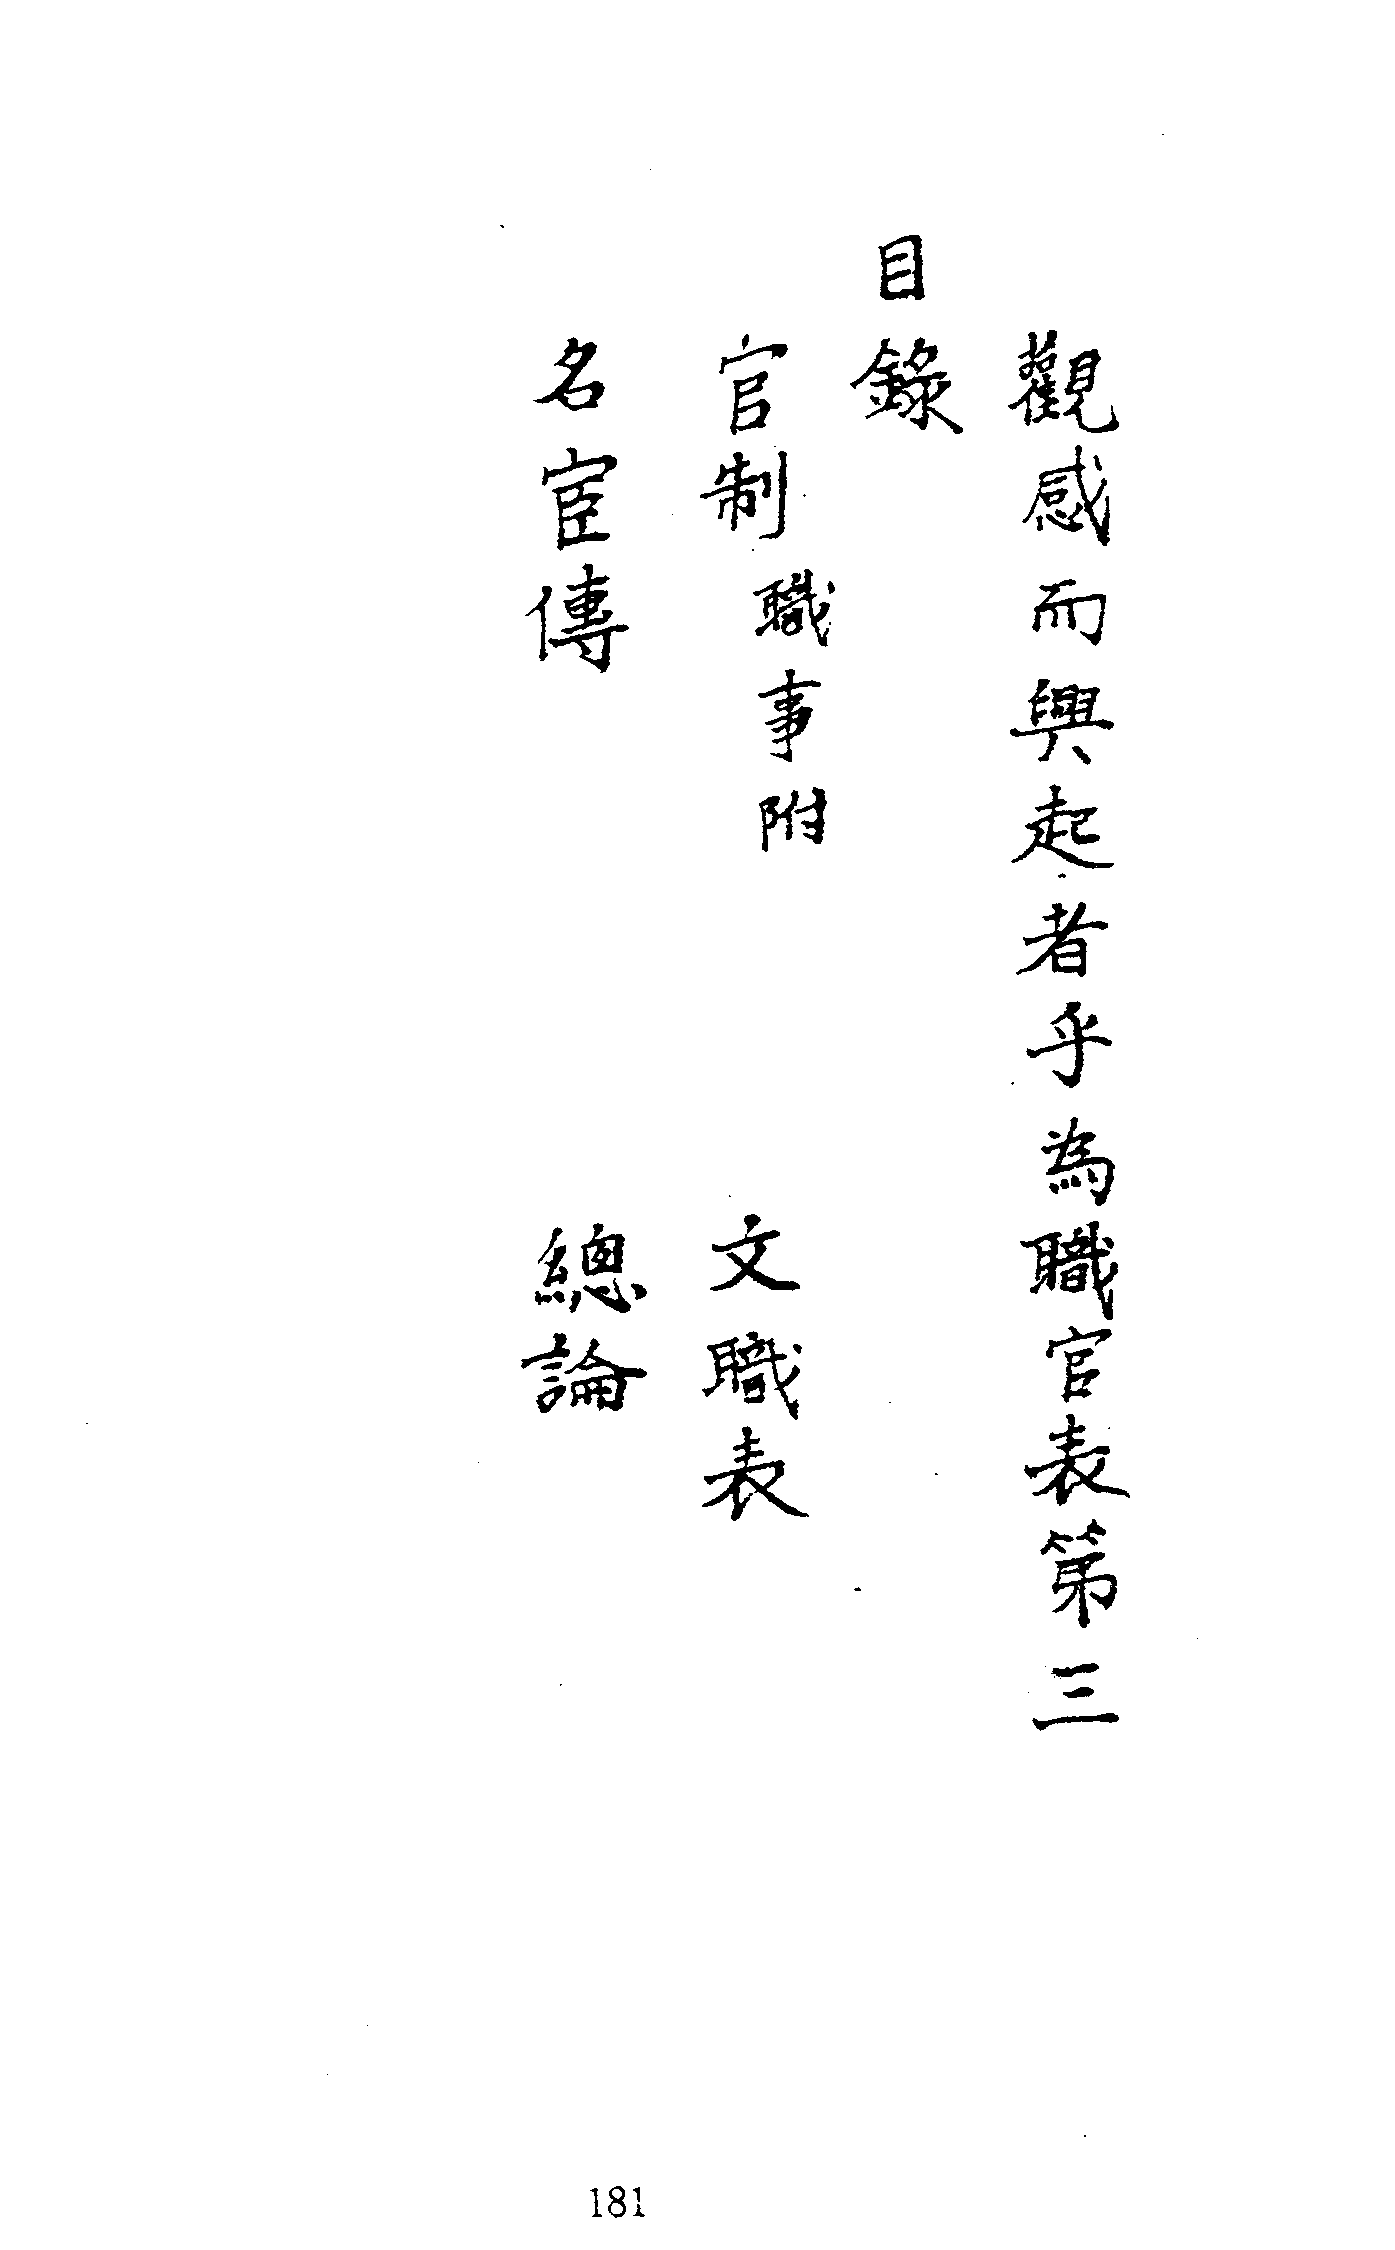 觀感而興起者乎為職官表第三
目錄
官制職事附 文職表
名宦傳 總論
181